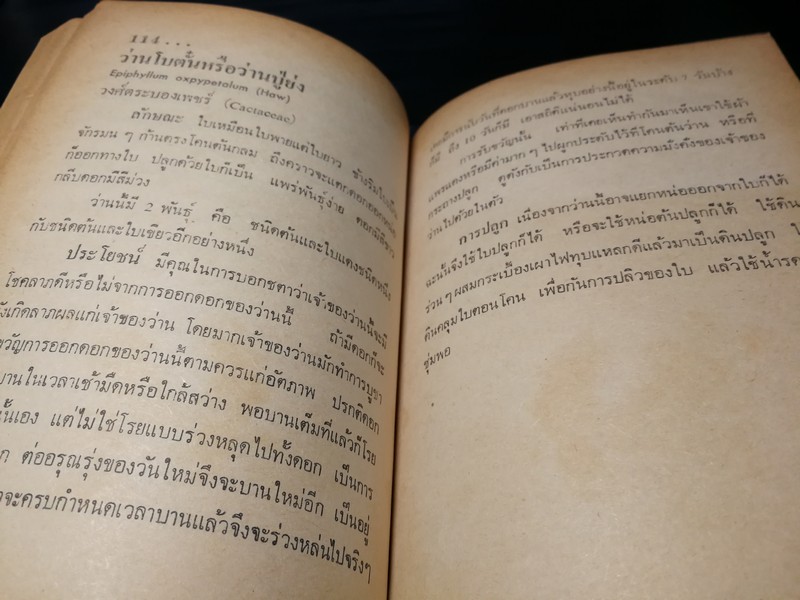 114 . . .
ว่านโบตั๋นหรือว่านปู่ย่ง
Epiphyllum oxpypetolum (Haw)
วงศ์ตระบองเพชร์ (Cactaceae)
ลักษณะ ใบเหมือนใบพายแต่ใบยาว ข้างริมใบเป็น
จักรมน ๆ ก้านตรงโคนต้นกลม ถึงคราวจะแตกดอกออกหน่อ
ก็ออกทางใบ ปลูกด้วยใบก็เป็น แพร่พันธุ์ง่าย ดอกมีสีขาว
กลีบดอกมีสีม่วง
ว่านนี้มี 2 พันธุ์ คือ ชนิดต้นและใบแดงชนิดหนึ่ง
กับชนิดต้นและใบเขียวอีกอย่างหนึ่ง
ประโยชน์ มีคุณในการบอกชตาว่าเจ้าของว่านนี้จะมี
โชคลาภดีหรือไม่จากการออกดอกของว่านนี้ ถ้ามีดอกก็จะ
บังเกิดลาภผลแก่เจ้าของว่าน โดยมากเจ้าของว่านมักทำการบูชา
ขวัญการออกดอกของว่านนี้ตามควรแก่อัตภาพ ปรกติดอก
บานในเวลาเช้ามืดหรือใกล้สว่าง พอบานเต็มที่แล้วก็โรย
นั้นเอง แต่ไม่ใช่โรยแบบร่วงหลุดไปทั้งดอก เป็นการ
ต่ออรุณรุ่งของวันใหม่จึงจะบานใหม่อีก เป็นอยู่
จะครบกำหนดเวลาบานแล้วจึงจะร่วงหล่นไปจริงๆ
วันที่ดอกบานแล้วหุบอย่างนี้อยู่ในระดับ 7 วันบ้าง
ก็มี ถึง 10 วันก็มี เอาสถิติแน่นอนไม่ได้
การรับขวัญนั้น เท่าที่เคยเห็นทำกันมาเห็นเขาใช้ผ้า
แพรแดงหรือมีค่ามาก ๆ ไปผูกประดับไว้ที่โคนต้นว่าน หรือที่
กระถางปลูก ดูดังกับเป็นการประกวดความมั่งคั่งของเจ้าของ
ว่านไปด้วยในตัว
การปลูก เนื่องจากว่านนี้อาจแยกหน่อออกจากใบก็ได้
ฉะนั้นจึงใช้ใบปลูกก็ได้ หรือจะใช้หน่อต้นปลูกก็ได้ ใช้ดิน
ร่วน ๆ ผสมกระเบื้องเผาไฟทุบแหลกดีแล้วมาเป็นดินปลูก
ดินคลุมใบตอนโคน เพื่อกันการปลิวของใบ แล้วใช้น้ำรด
ชุ่มพอ